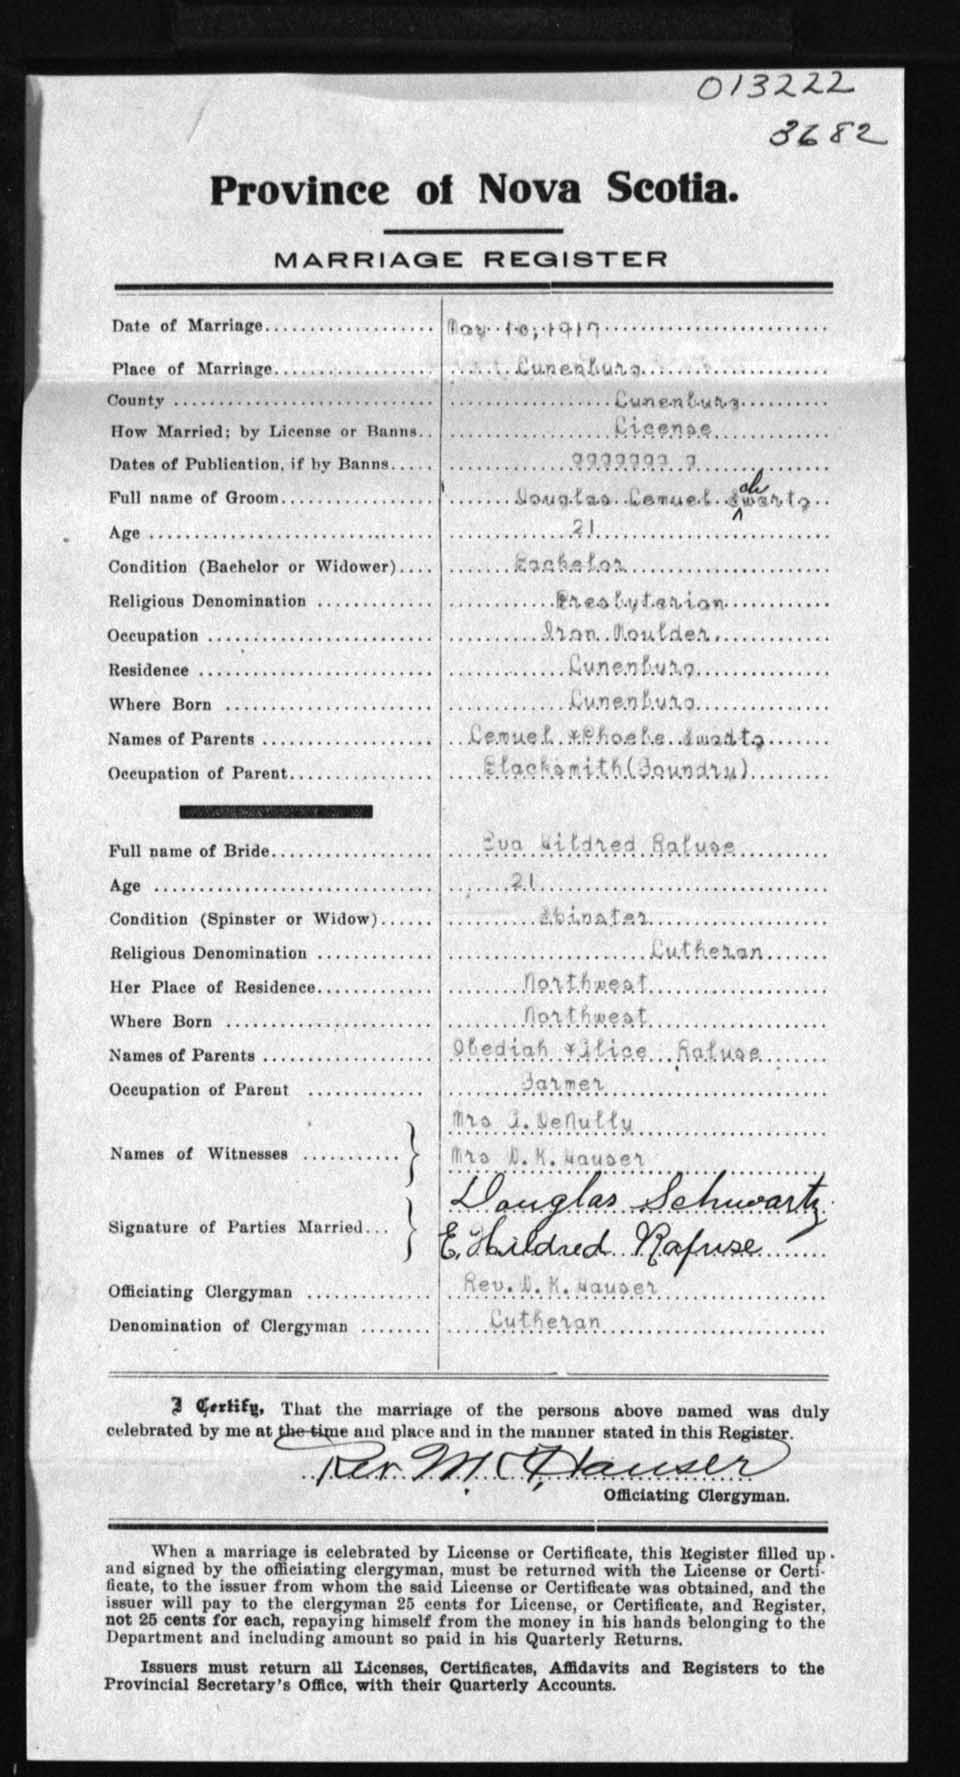 013222
3682
Province of Nova Scotia.
MARRIAGE REGISTER
Date of Marriage May 10, 1917
Place of Marriage Lunenburg
County Lunenburg
How Married; by License or Banns License
Dates of Publication, if by Banns
Full name of Groom Douglas Lemuel Swartz ch
Age 21
Condition (Bachelor or Widower) Bachelor
Religious Denomination Presbyterian
Occupation Iron Moulder.
Residence Lunenburg
Where Born Lunenburg
Names of Parents Lemuel & Phoebe Swartz
Occupation of Parent Blacksmith (Foundry)
Full name of Bride Eva Mildred Rafuse
Age 21
Condition (Spinster or Widow) Spinster
Religious Denomination Lutheran
Her Place of Residence Northwest
Where Born Northwest
Names of Parents Obediah & Alice Rafuse
Occupation of Parent Farmer
Mrs A. DeNully
Names of Witnesses
Mrs W. K. Hauser
Douglas Schwartz
Signature of Parties Married
E. Mildred Rafuse
Officiating Clergyman Rev. W. K. Hauser
Denomination of Clergyman Lutheran
I Certify, That the marriage of the persons above named was duly
celebrated by me at the time and place and in the manner stated in this Register.
Rev. Hauser
Officiating Clergyman.
When a marriage is celebrated by License or Certificate, this Register filled up
and signed by the officiating clergyman, must be returned with the License or Certi-
ficate, to the issuer from whom the said License or Certificate was obtained, and the
issuer will pay to the clergyman 25 cents for License, or Certificate, and Register,
not 25 cents for each, repaying himself from the money in his hands belonging to the
Department and including amount so paid in his Quarterly Returns.
Issuers must return all Licenses, Certificates, Affidavits and Registers to the
Provincial Secretary's Office, with their Quarterly Accounts.